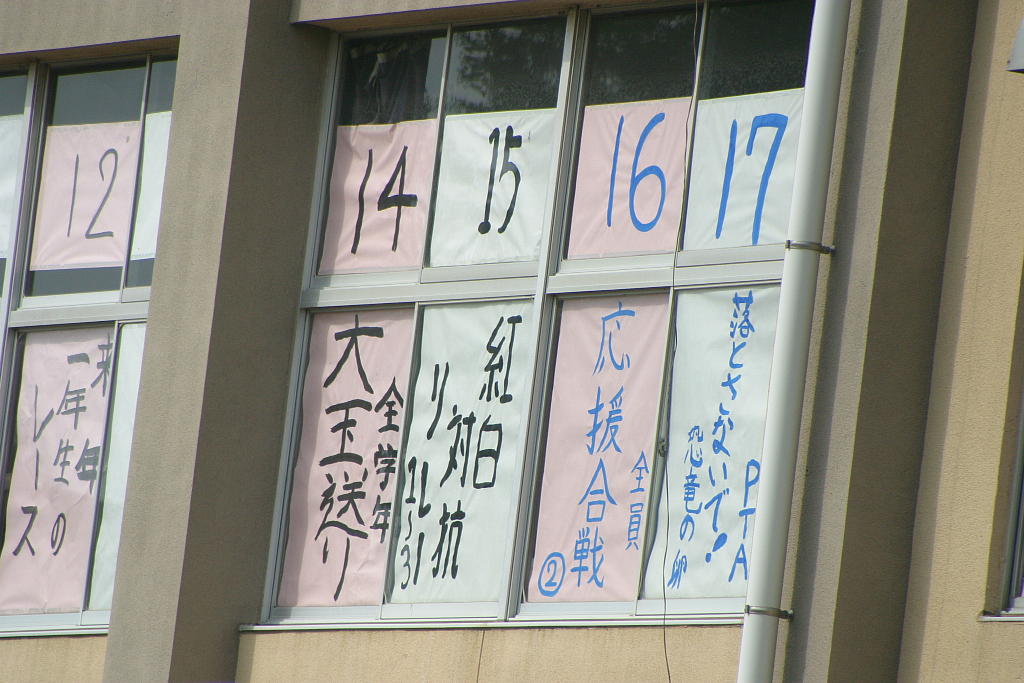 12
14
15
16
17
来年
一年生の
レース
大玉送り
全学年
紅白
対抗
リレー
1~3
応援合戦
②
全員
落とさないで!
恐竜の卵
PTA